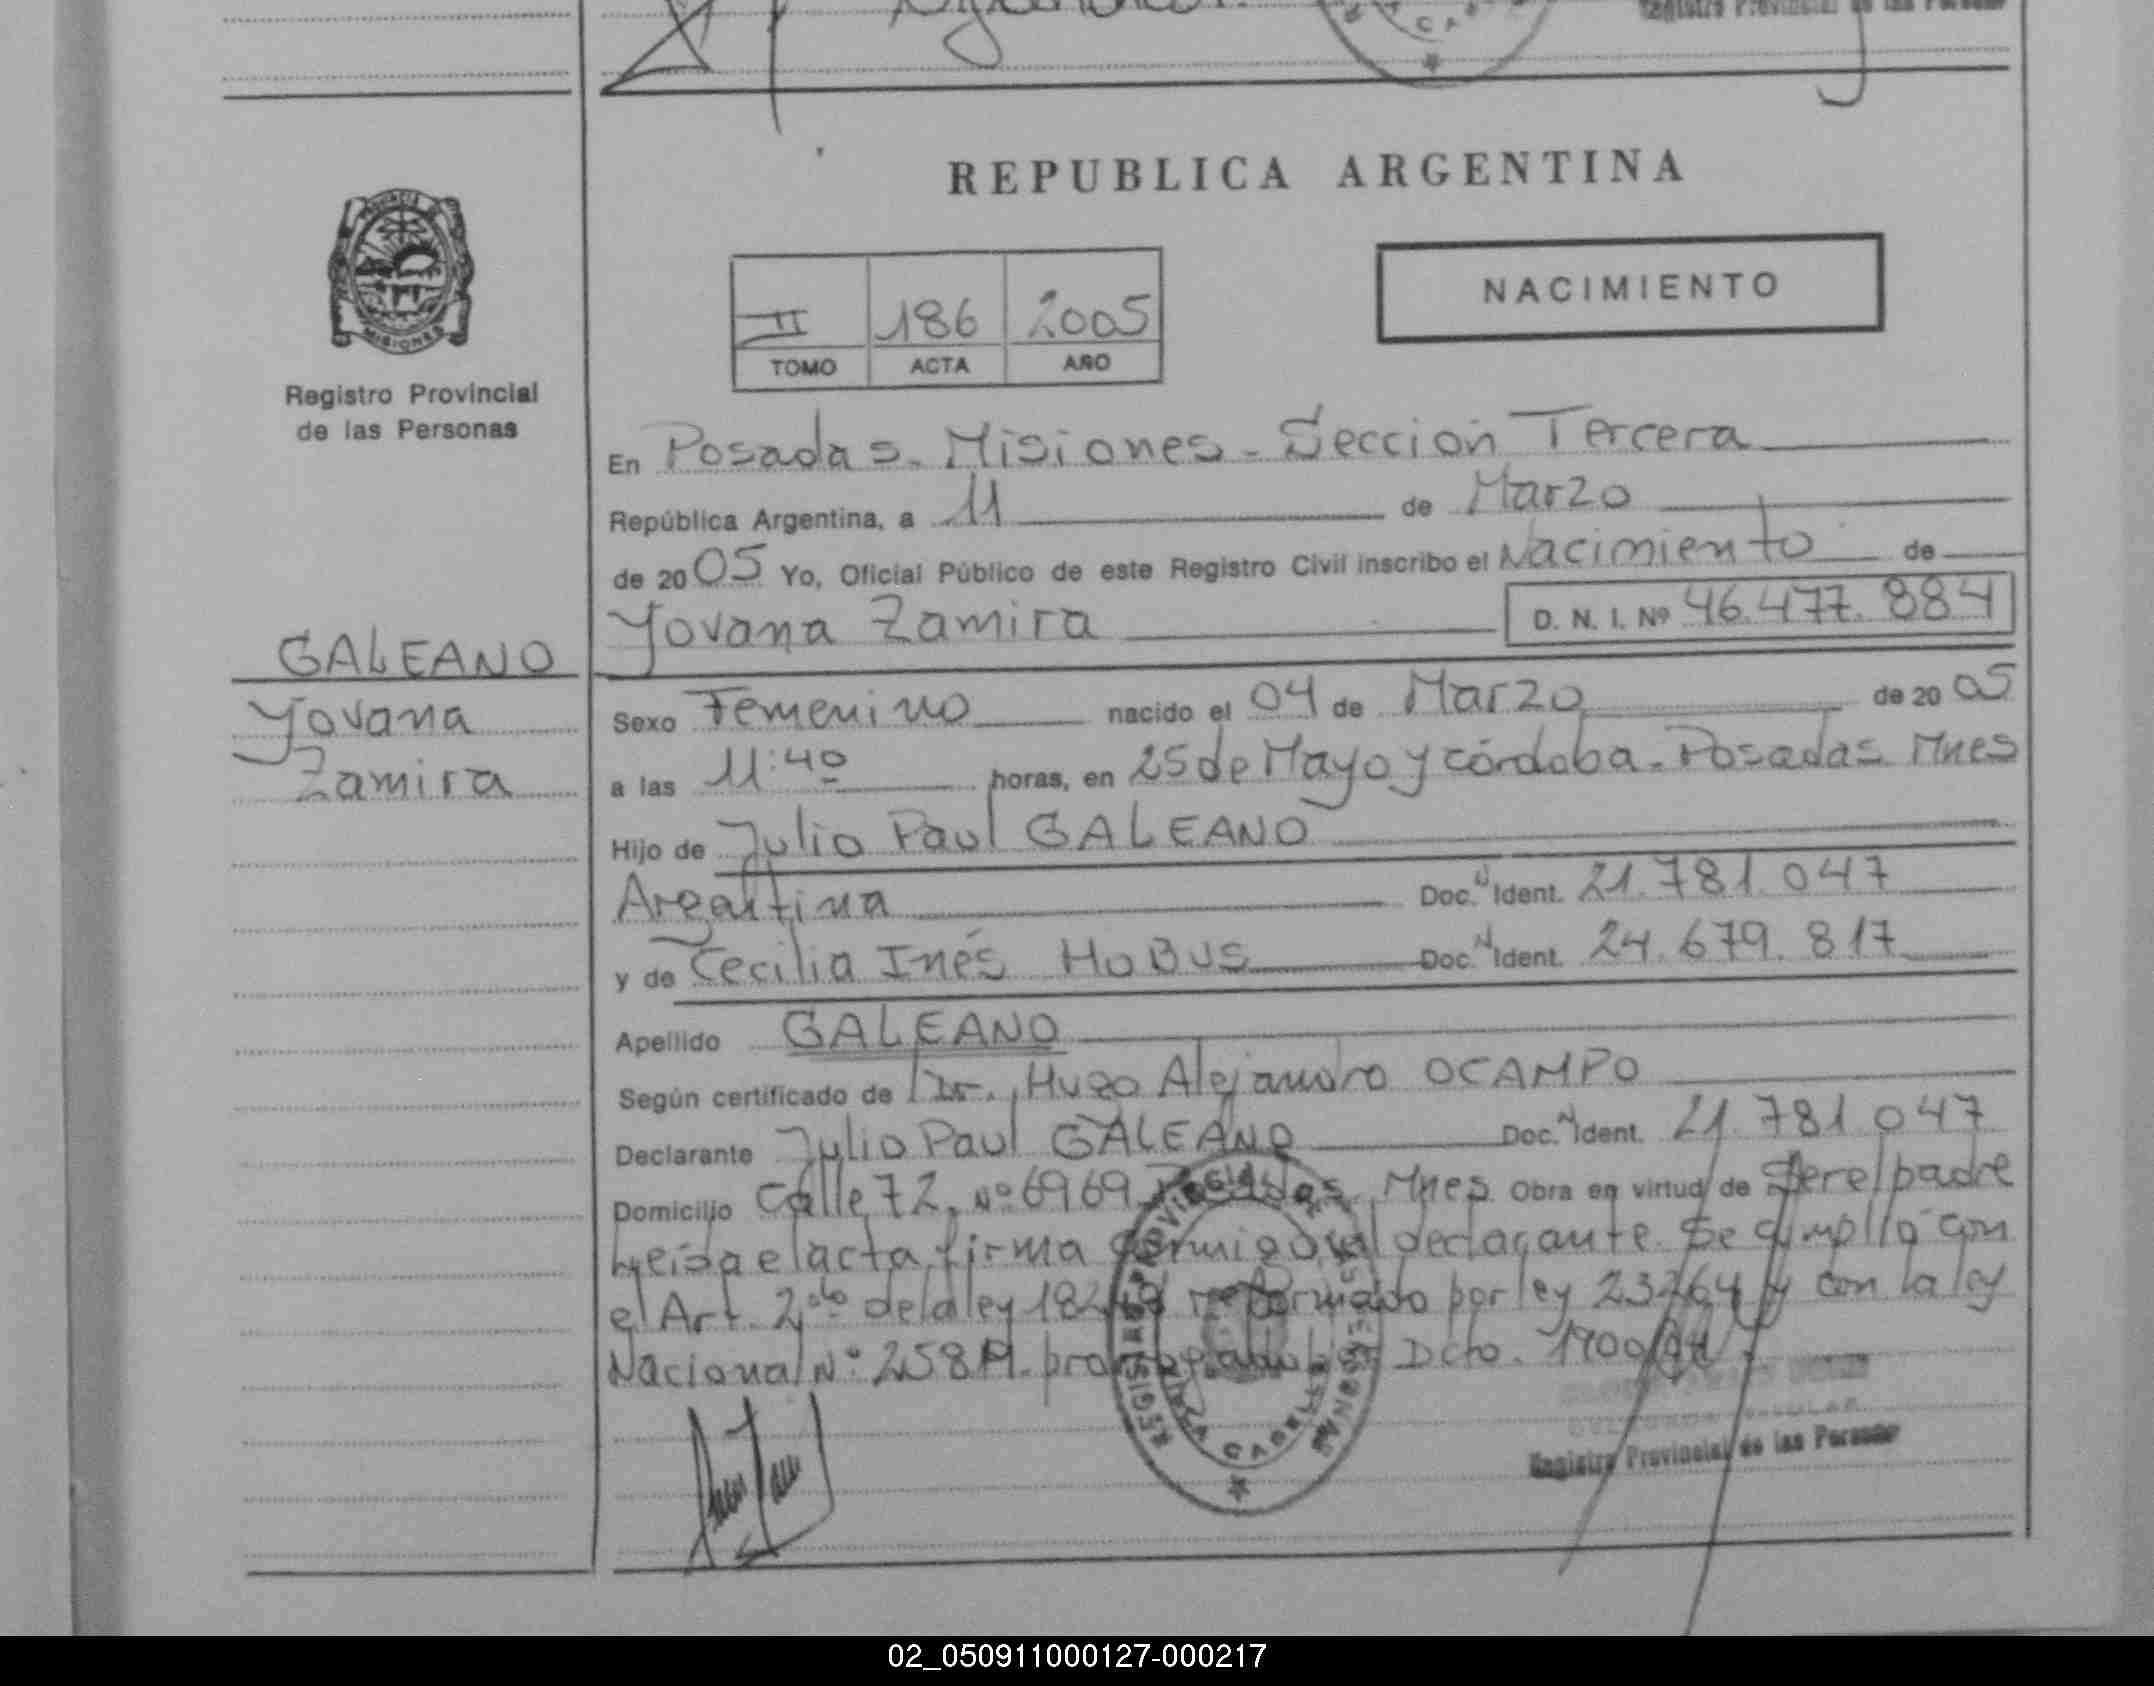 Registro Provincial de las Personas
REPUBLICA ARGENTINA
PROVINCIA DE
MISIONES
Registro Provincial
de las Personas
II 186 2005
TOMO ACTA AÑO
NACIMIENTO
En Posadas. Misiones - Sección Tercera
República Argentina, a 11 de Marzo
de 2005 Yo, Oficial Público de este Registro Civil inscribo el Nacimiento de
Yovana Zamira D. N. I. Nº 46.477.884
GALEANO
Yovana
Zamira
Sexo Femenino nacido el 04 de Marzo de 2005
a las 11:40 horas, en 25 de Mayo y córdoba. Posadas. Mnes
Hijo de Julio Paul GALEANO
Argentina Doc. N Ident. 21.781.047
y de Cecilia Inés HOBUS Doc. N Ident. 24.679.817
Apellido GALEANO
Según certificado de Dr. Hugo Alejandro OCAMPO
Declarante Julio Paul GALEANO Doc. N Ident. 21.781.047
Domicilio Calle 72. Nº 6969 Posadas. Mnes. Obra en virtud de Ser el padre
Leida el acta firma conmigo el declarante. Se cumplió con
el Art. 2do de la ley reformado por ley 23264 y con la ley
Nacional Nº Dcto.
REGISTRO PROVINCIAL DE LAS PERSONAS
VILLA CABELLO
Registro Provincial de las Personas
02_050911000127-000217